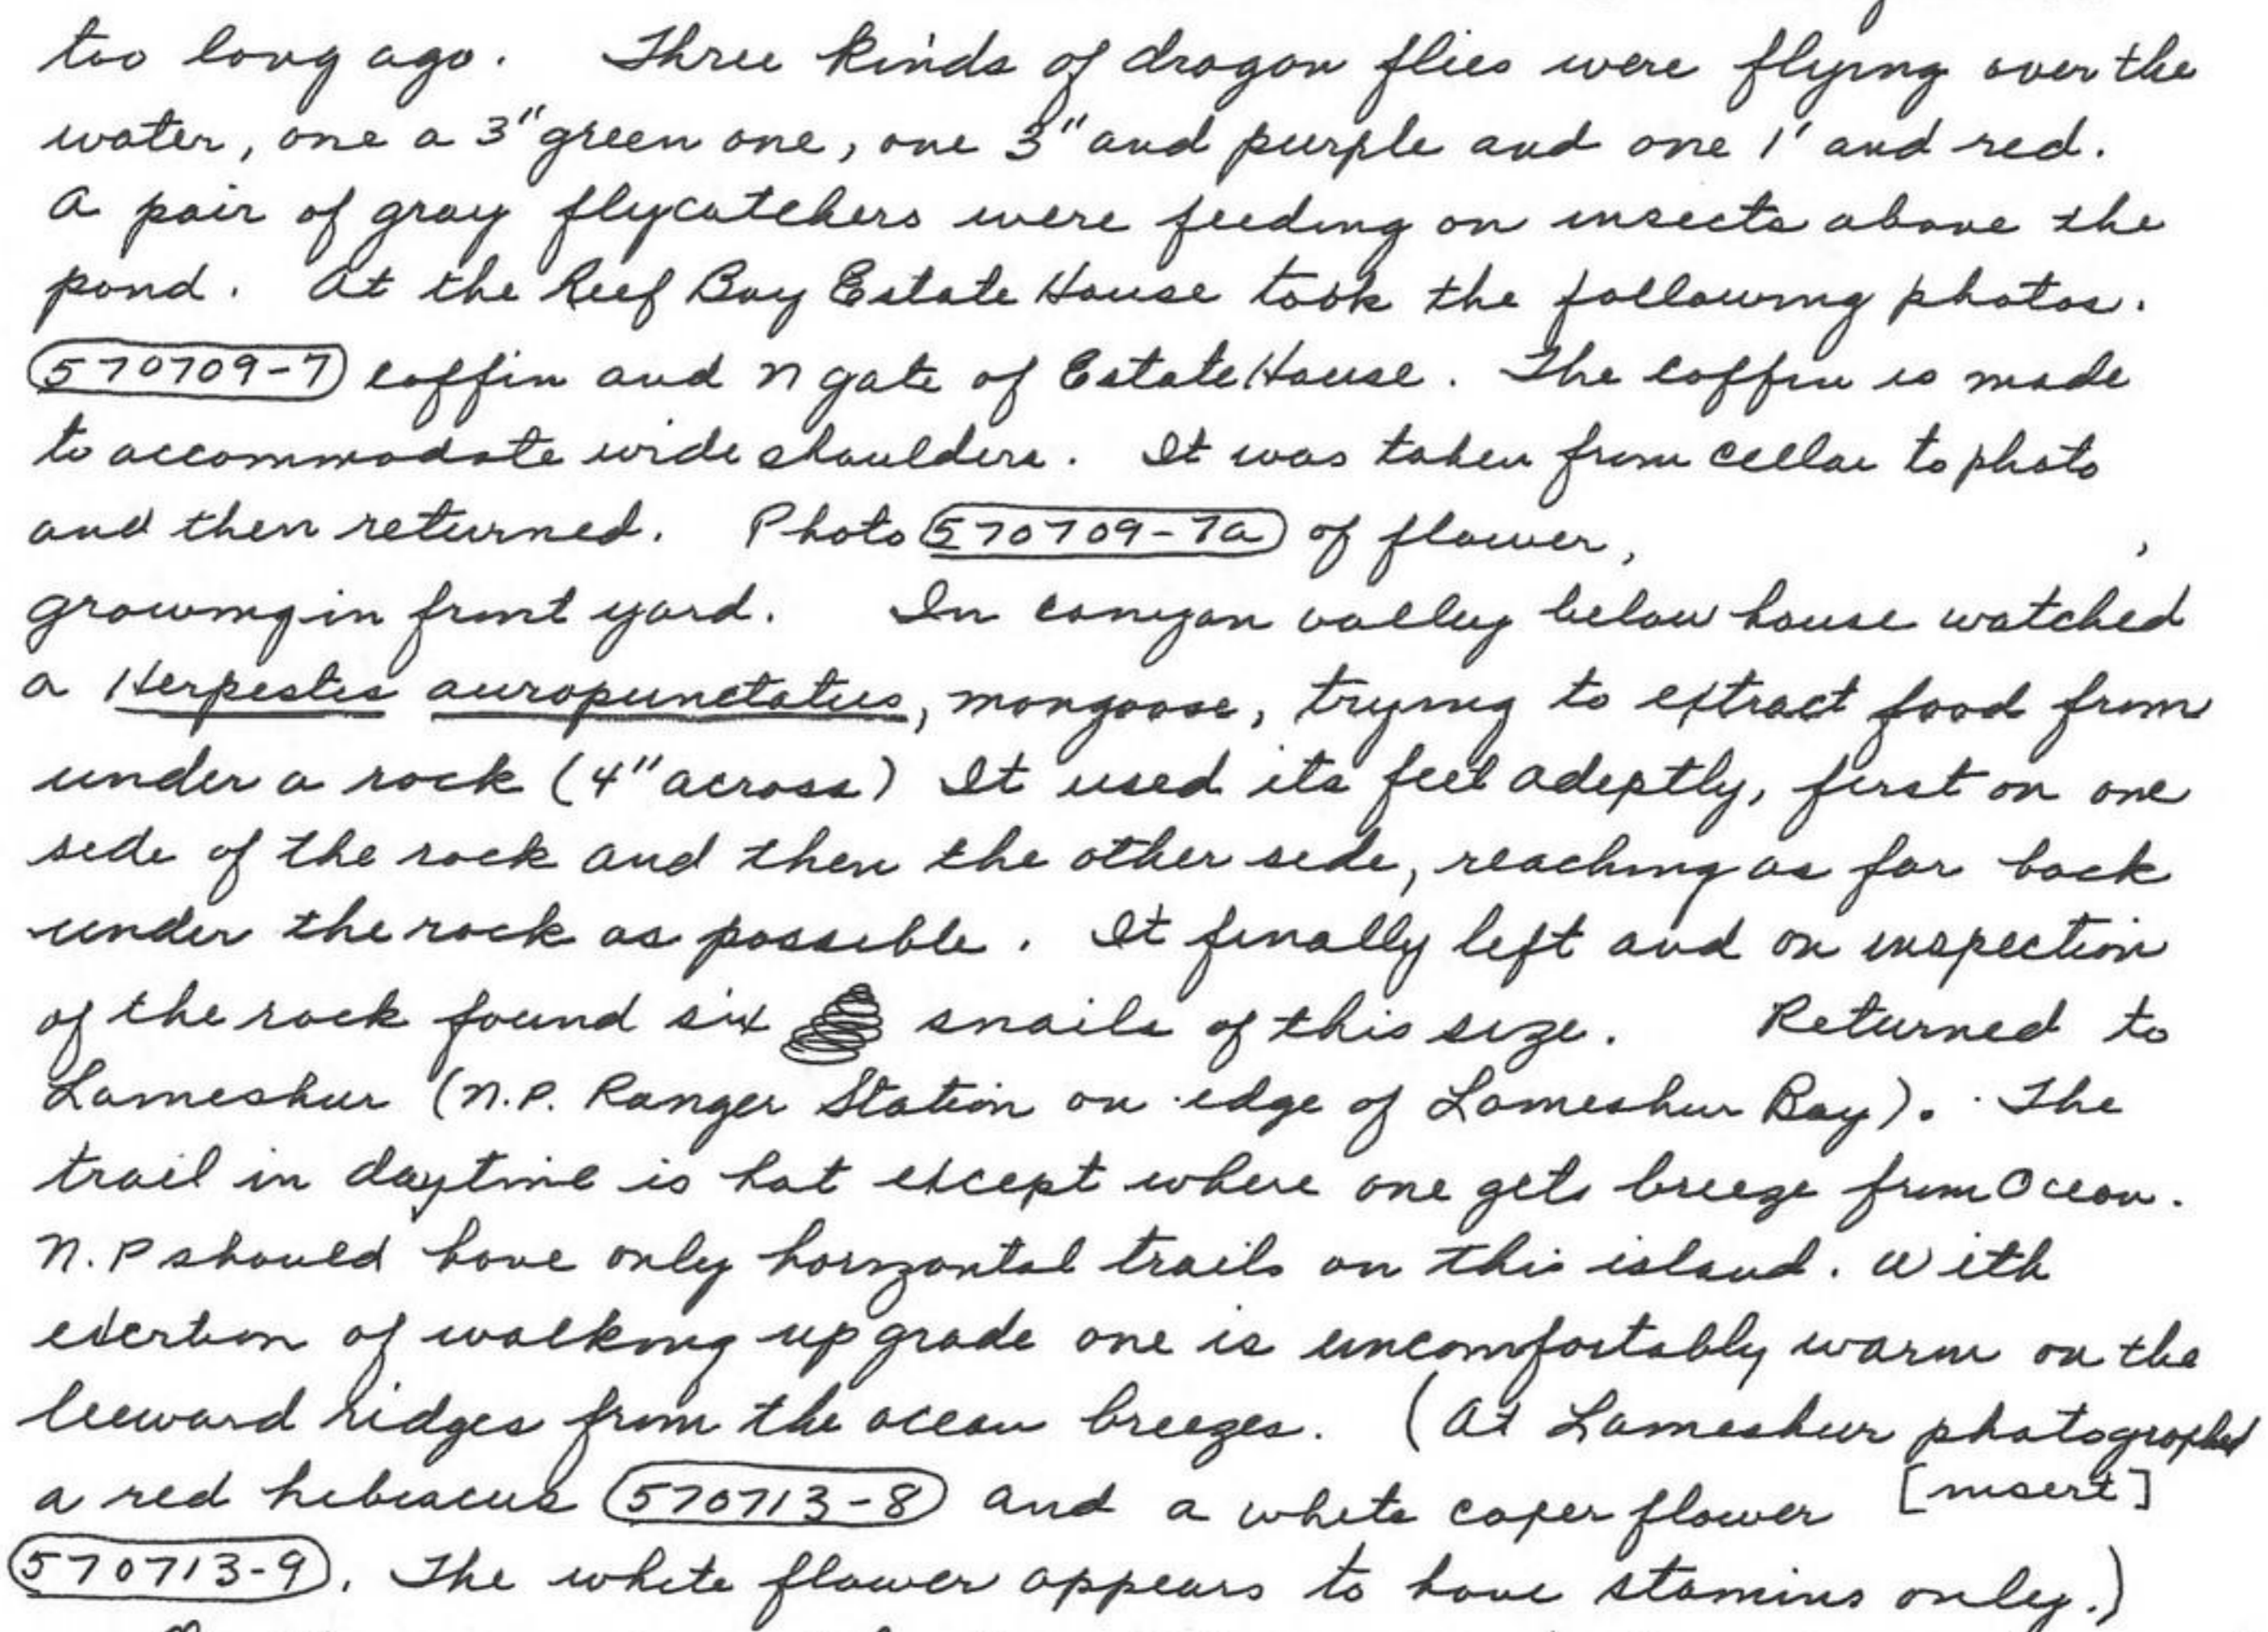 too long ago. Three kinds of dragon flies were flying over the
water, one a 3" green one, one 3" and purple and one 1' and red.
A pair of gray flycatchers were feeding on insects above the
pond. At the Reef Bay Estate House took the following photos.
570709-7 coffin and N gate of Estate House. The coffin is made
to accommodate wide shoulders. It was taken from cellar to photo
and then returned. Photo 570709-7a of flower, ,
growing in front yard. In canyon valley below house watched
a Herpestes auropunctatus, mongoose, trying to extract food from
under a rock (4" across) It used its feet adeptly, first on one
side of the rock and then the other side, reaching as far back
under the rock as possible. It finally left and on inspection
of the rock found six snails of this size. Returned to
Lameshur (N.P. Ranger Station on edge of Lameshur Bay). The
trail in daytime is hot except where one gets breeze from Ocean.
N.P should have only horizontal trails on this island. With
exertion of walking up grade one is uncomfortably warm on the
leeward ridges from the ocean breezes. (At Lameshur photographed
a red hibiscus 570713-8 and a white caper flower [insert]
570713-9. The white flower appears to have stamins only.)